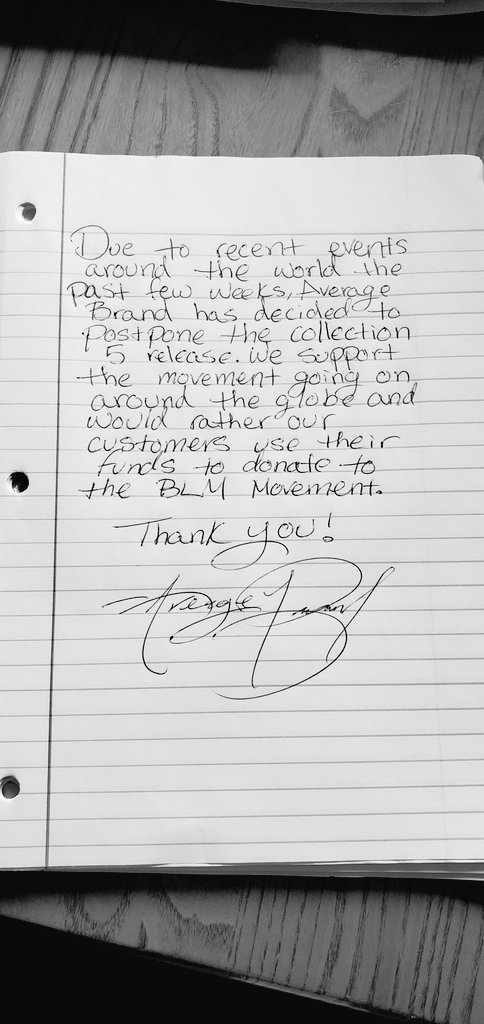 Due to recent events
around the world the
past few weeks, Average
Brand has decided to
postpone the collection
5 release. We support
the movement going on
around the globe and
would rather our
customers use their
funds to donate to
the BLM Movement.
Thank you!
Average Brand